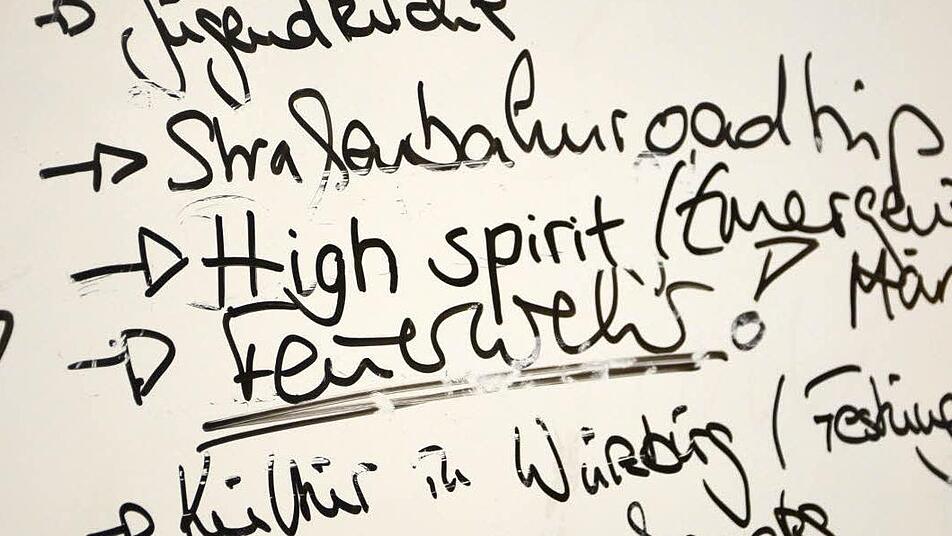 → Jugendkirche
→ Straßenbahnroadtrip
→ High spirit (Emergen
→ Feuerwehr!
Mär
Kultur in Würzburg (Festung